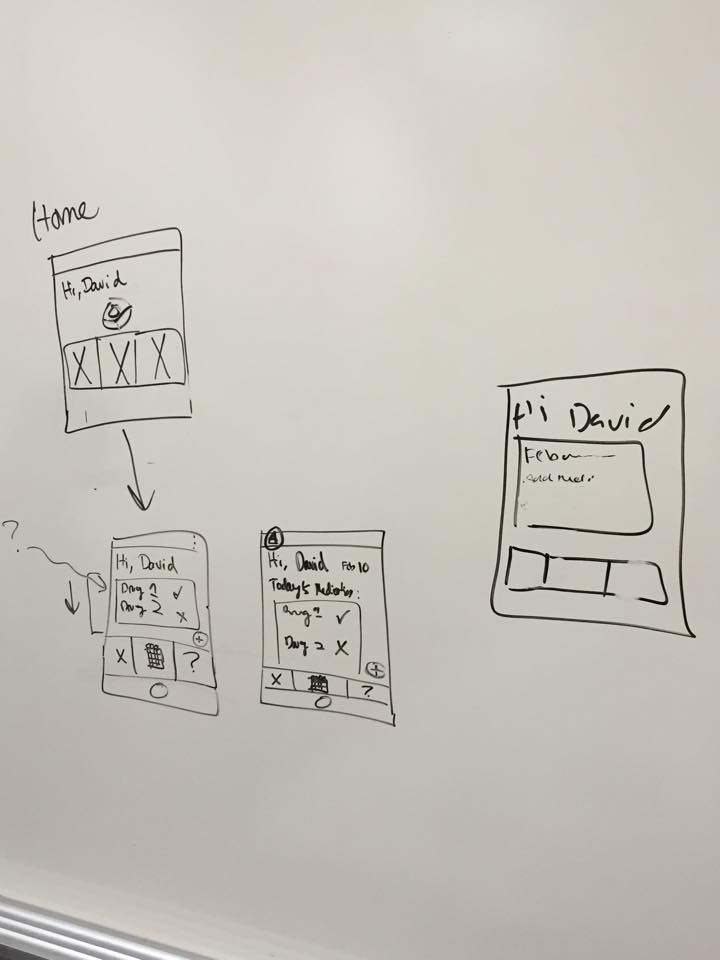 Home
Hi, David
X X X
?
Hi, David
Drug 1 ✓
Drug 2 X
+
X ?
Hi, David Feb 10
Today's
Drug 1 ✓
Drug 2 X
+
X ?
Hi David